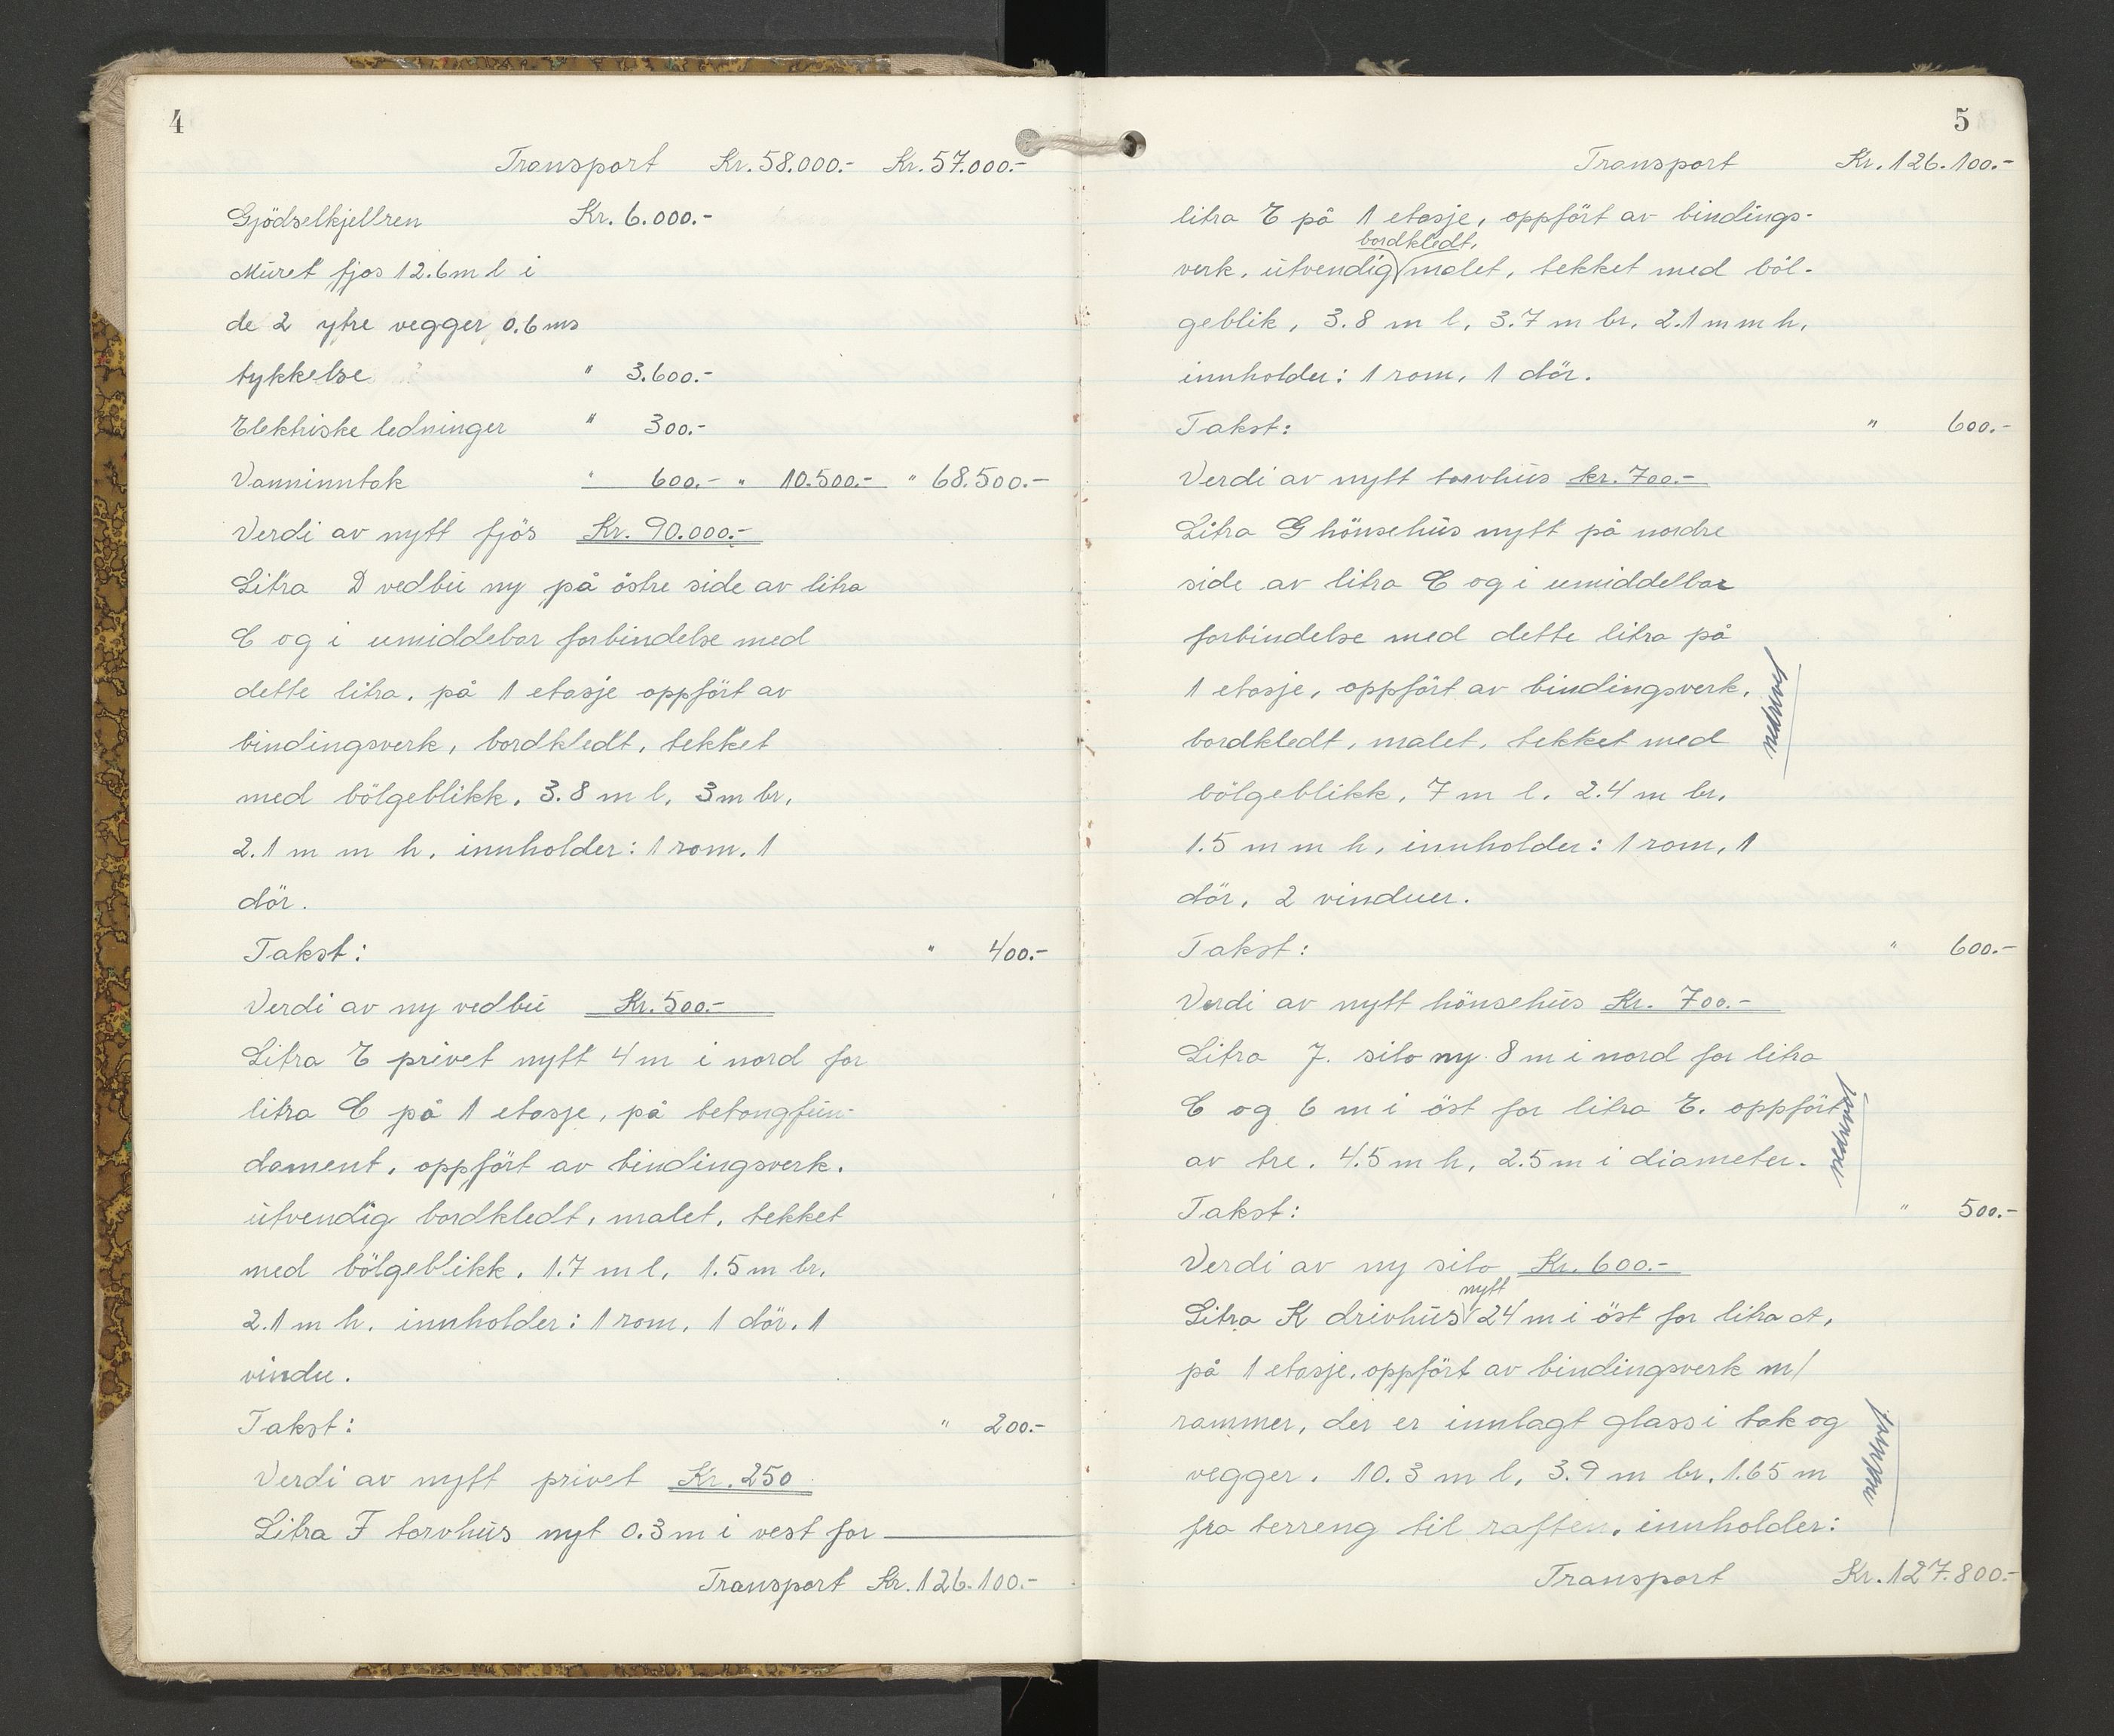 4
Transport Kr. 58.000.- Kr. 57.000.-
Gjödselkjellren Kr. 6.000.-
Muret fjos 12.6 m l i
de 2 ytre vegger 0.6 ms
tykkelse " 3.600.-
Elektriske ledninger " 300.-
Vanninntak " 600.- " 10.500.- " 68.500.-
Verdi av nytt fjös Kr. 90.000.-
Litra D vedbu ny på östre side av litra
C og i umiddebar forbindelse med
dette litra. på 1 etasje oppfört av
bindingsverk, bordkledt, tekket
med bölgeblikk. 3.8 m l. 3 m br.
2.1 m m h. innholder: 1 rom. 1
dör.
Takst: " 400.-
Verdi av ny vedbu Kr. 500.-
Litra E privet nytt 4 m i nord for
litra C på 1 etasje, på betongfun-
dament. oppfört av bindingsverk.
utvendig bordkledt, malet, tekket
med bölgeblikk. 1.7 m l. 1.5 m br.
2.1 m h. innholder: 1 rom. 1 dör. 1
vindu.
Takst: " 200.-
Verdi av nytt privet Kr. 250
Litra F torvhus nyt 0.3 m i vest for
Transport Kr. 126.100.-
5
Transport Kr. 126.100.-
litra E på 1 etasje, oppfört av bindings-
bordkledt,
verk, utvendig malet, tekket med böl-
geblik, 3.8 m l, 3.7 m br. 2.1 m m h,
innholder: 1 rom, 1 dör.
Takst: " 600.-
Verdi av nytt torvhus kr. 700.-
Litra G hönsehus nytt på nordre
side av litra C og i umiddelbar
forbindelse med dette litra på
1 etasje, oppfört av bindingsverk,
nedrevet
bordkledt, malet, tekket med
bölgeblikk, 7 m l. 2.4 m br.
1.5 m m h, innholder: 1 rom, 1
dör, 2 vinduer.
Takst: " 600.-
Verdi av nytt hönsehus Kr. 700.-
Litra J. silo ny 8 m i nord for litra
C og 6 m i öst for litra E. oppfört
nedrevet
av tre. 4.5 m h, 2.5 m i diameter.
Takst: " 500.-
Verdi av ny silo Kr. 600.-
nytt
Litra K drivhus 24 m i öst for litra A,
på 1 etasje, oppfört av bindingsverk m/
rammer, der er innlagt glass i tak og
nedrevet
vegger. 10.3 m l, 3.9 m br. 1.65 m
fra terreng til raften. innholder:
Transport Kr. 127.800.-